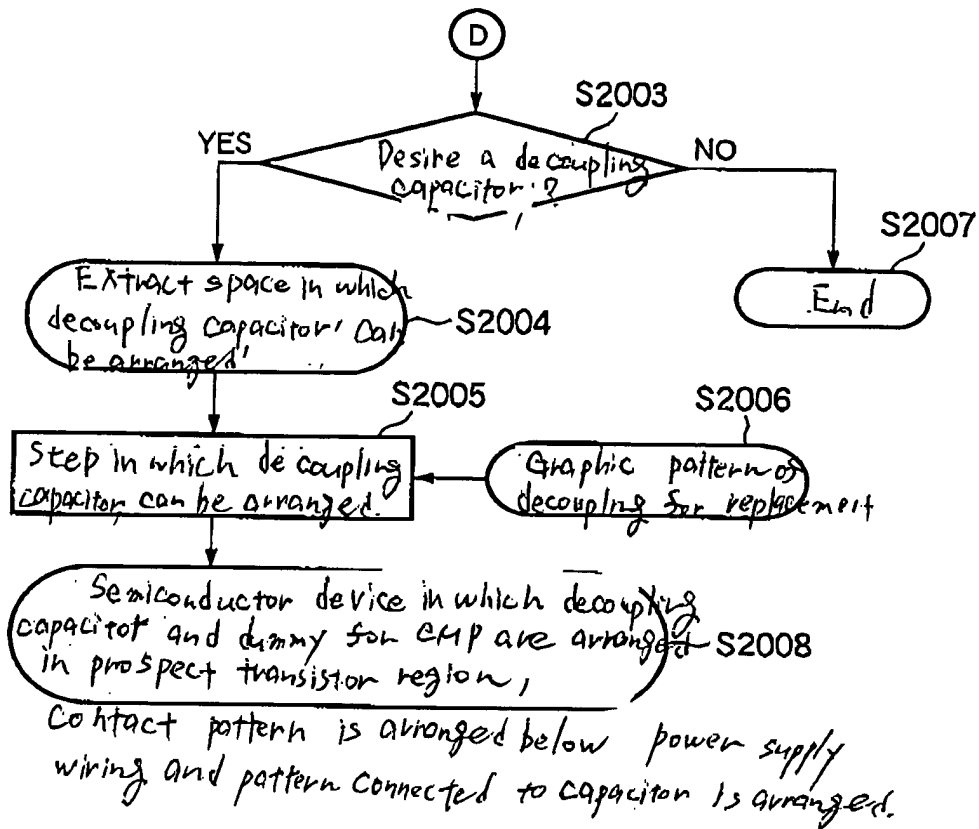 D
S2003
YES
NO
Desire a decoupling
capacitor?
S2007
End
Extract space in which
decoupling capacitor can
be arranged
S2004
S2005
Step in which decoupling
capacitor can be arranged.
S2006
Graphic pattern of
decoupling for replacement
Semiconductor device in which decoupling
capacitor and dummy for CMP are arranged
in prospect transistor region,
S2008
Contact pattern is arranged below power supply
wiring and pattern connected to capacitor is arranged.